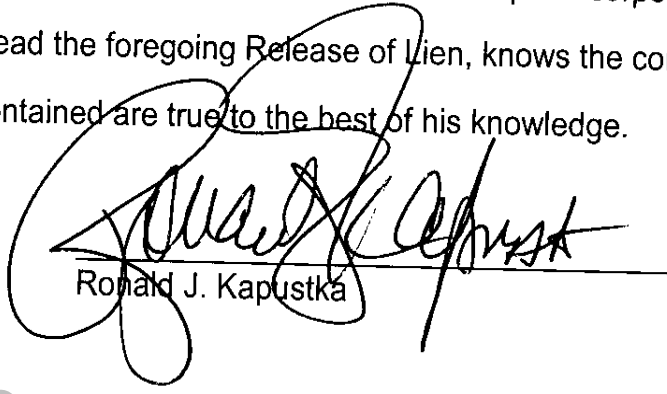 ead the foregoing Release of Lien, knows the co
ntained are true to the best of his knowledge.
Ronald J. Kapustka
Ronald J. Kapustka